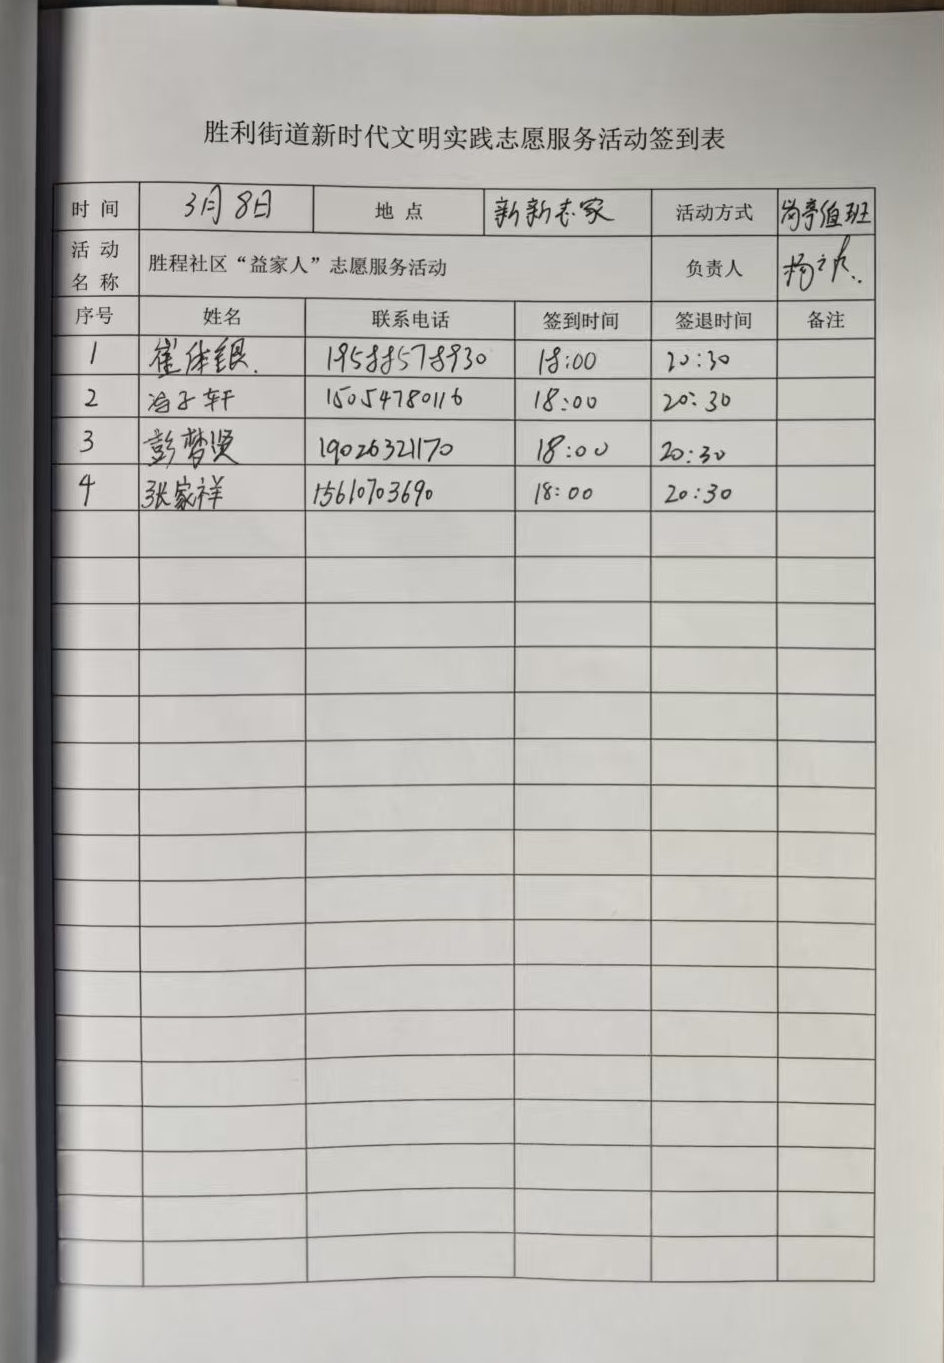 胜利街道新时代文明实践志愿服务活动签到表
时 间 3月8日 地 点 新新志家 活动方式 岗亭值班
活 动 名 称 胜程社区“益家人”志愿服务活动 负责人
序号 姓名 联系电话 签到时间 签退时间 备注
1 崔 19588578930 18:00 20:30
2 冯子轩 15054780116 18:00 20:30
3 彭梦贤 19026321170 18:00 20:30
4 张家祥 15610703690 18:00 20:30